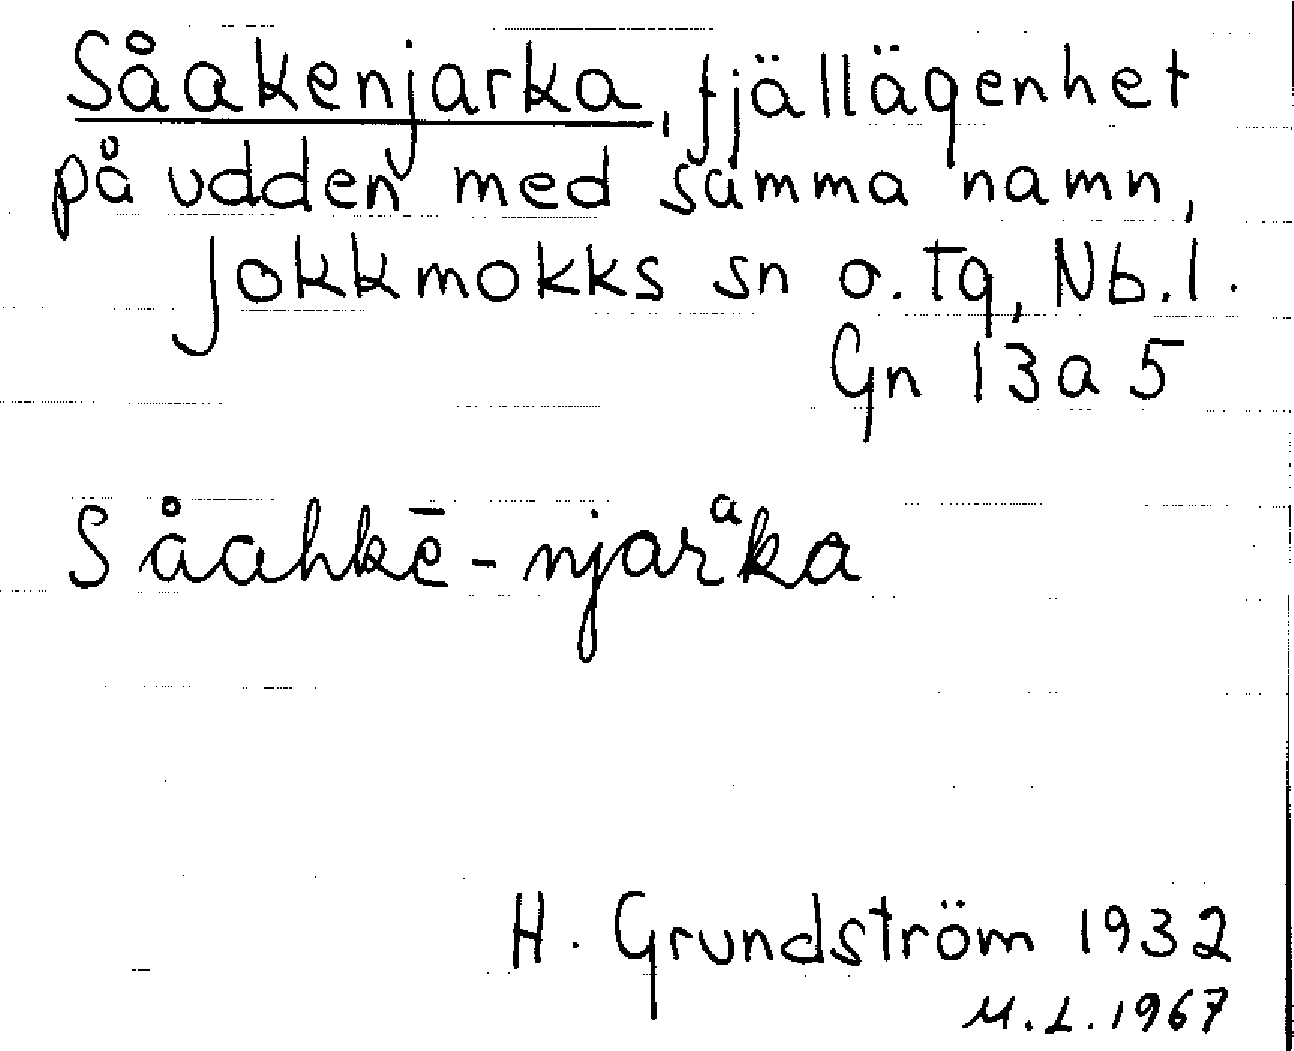 Såakenjarka, fjällägenhet
på udden med samma namn,
Jokkmokks sn o. Tg, Nb. l.
Gn 13 a 5
Såahkē-njarᵃka
H. Grundström 1932
M.L. 1967